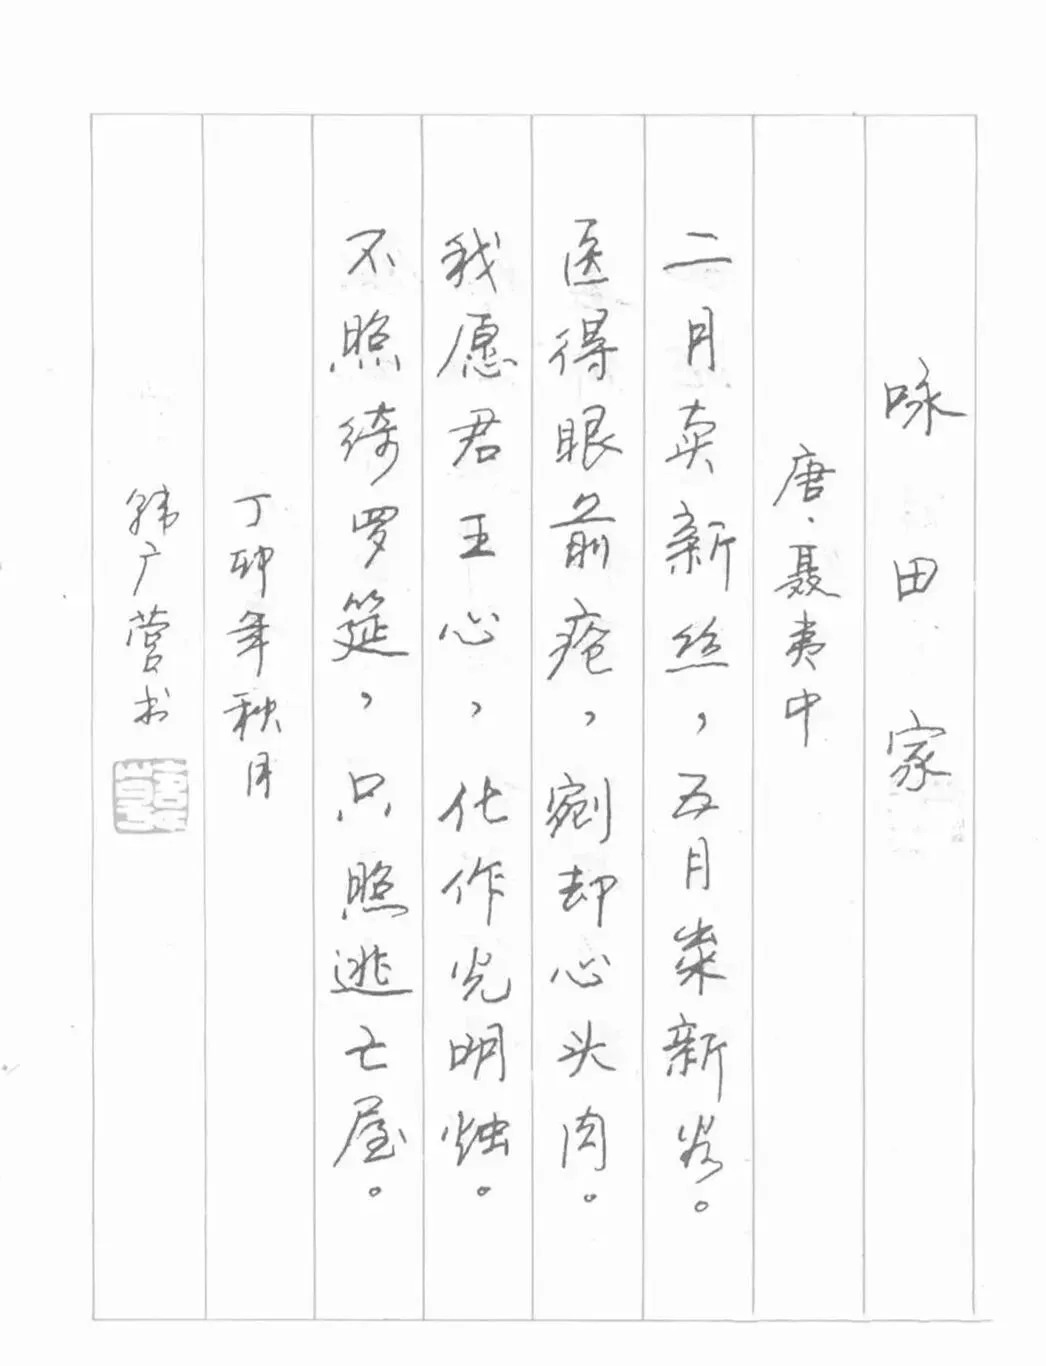 咏田家
唐·聂夷中
二月卖新丝，五月粜新谷。
医得眼前疮，剜却心头肉。
我愿君王心，化作光明烛。
不照绮罗筵，只照逃亡屋。
丁卯年秋月
韩广营书